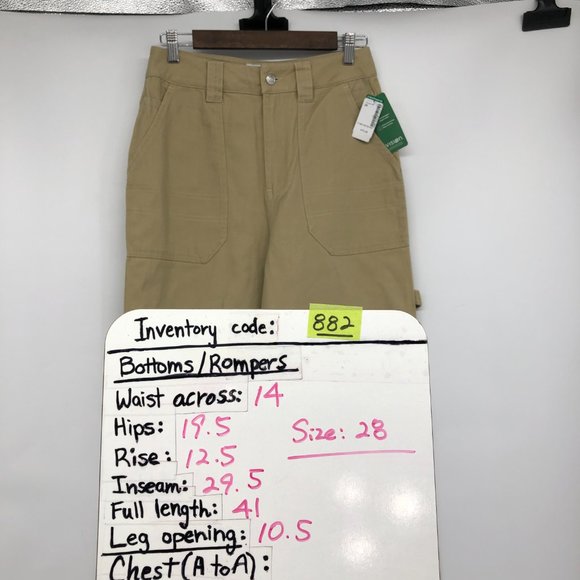 Inventory code: 882
Bottoms/Rompers
Waist across: 14
Hips: 19.5
Size: 28
Rise: 12.5
Inseam: 29.5
Full length: 41
Leg opening: 10.5
Chest (A to A):